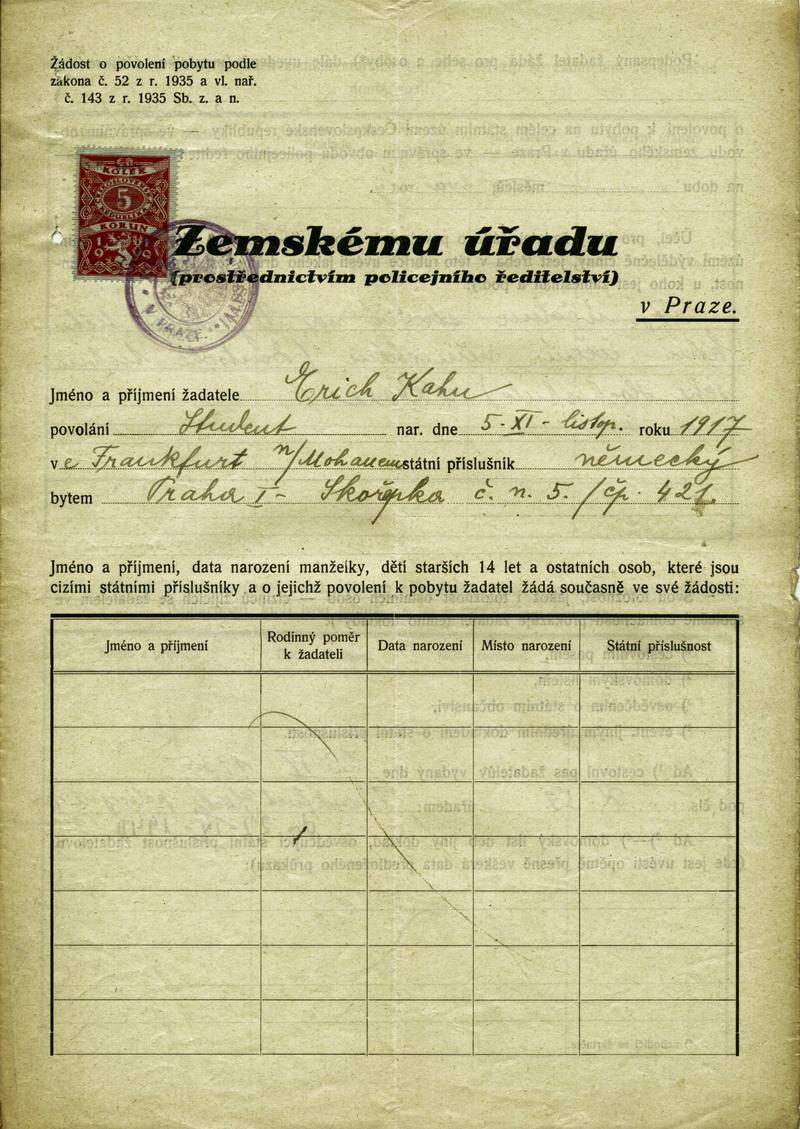 Žádost o povolení pobytu podle
zákona č. 52 z r. 1935 a vl. nař.
č. 143 z r. 1935 Sb. z. a n.
KOLEK
5
KORUN
Zemskému úřadu
(prostřednictvím policejního ředitelství)
V PRAZE
v Praze.
Jméno a příjmení žadatele Erich Kahn
povolání Student nar. dne 5-XI- listop. roku 1917
v e Frankfurt n/Mohanem státní příslušník německý
bytem Praha I- Skořepka č. n. 5./čp. 421.
Jméno a příjmení, data narození manželky, dětí starších 14 let a ostatních osob, které jsou
cizími státními příslušníky a o jejichž povolení k pobytu žadatel žádá současně ve své žádosti:
Jméno a příjmení Rodinný poměr k žadateli Data narození Místo narození Státní příslušnost